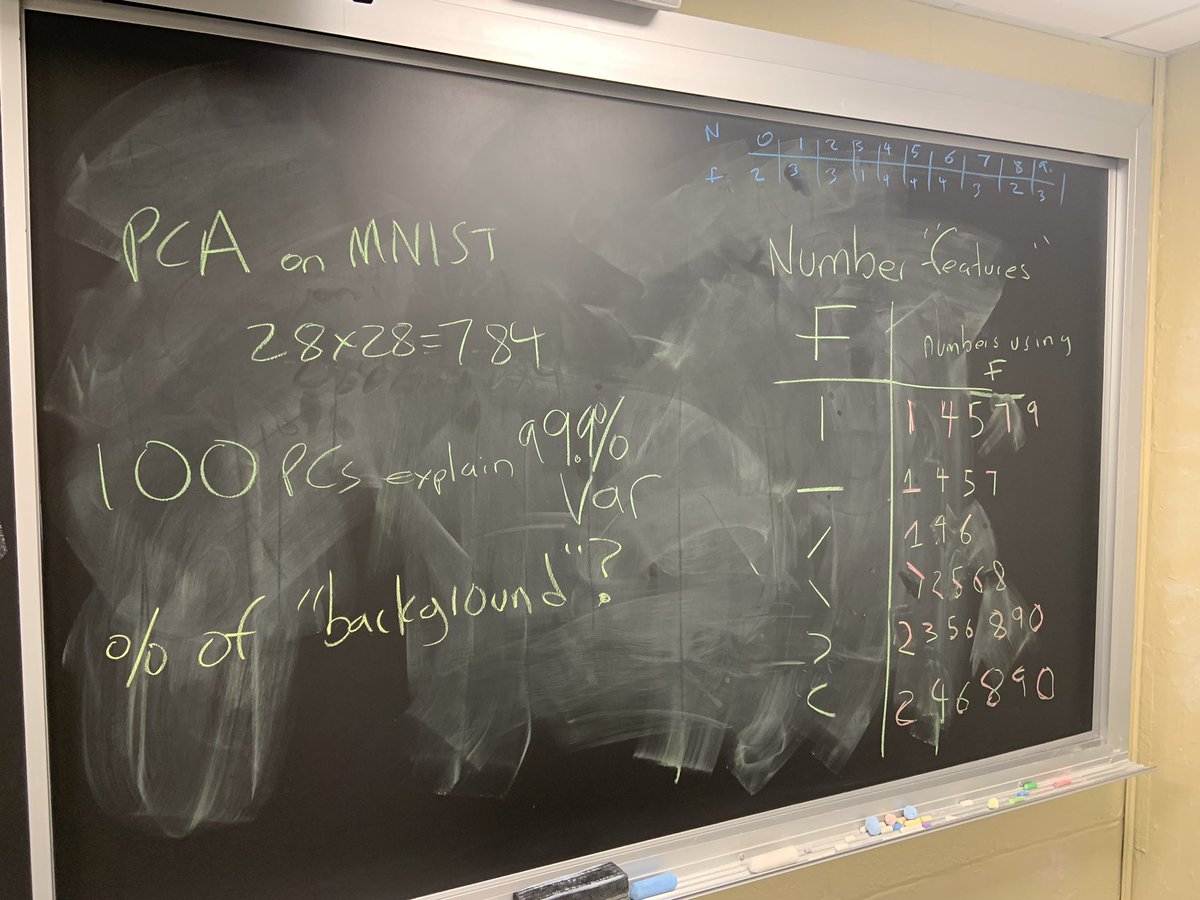 N 0 1 2 3 4 5 6 7 8 9
f 2 3 3 1 4 4 4 3 2 3
PCA on MNIST
28×28=784
100 PCs explain 99.9%
Var
% of "background"?
Number "features"
F numbers using
F
| 1 4 5 7 9
— 1 4 5 7
/ 1 4 6
\ 1 2 5 6 8
) 2 3 5 6 8 9 0
( 2 4 6 8 9 0